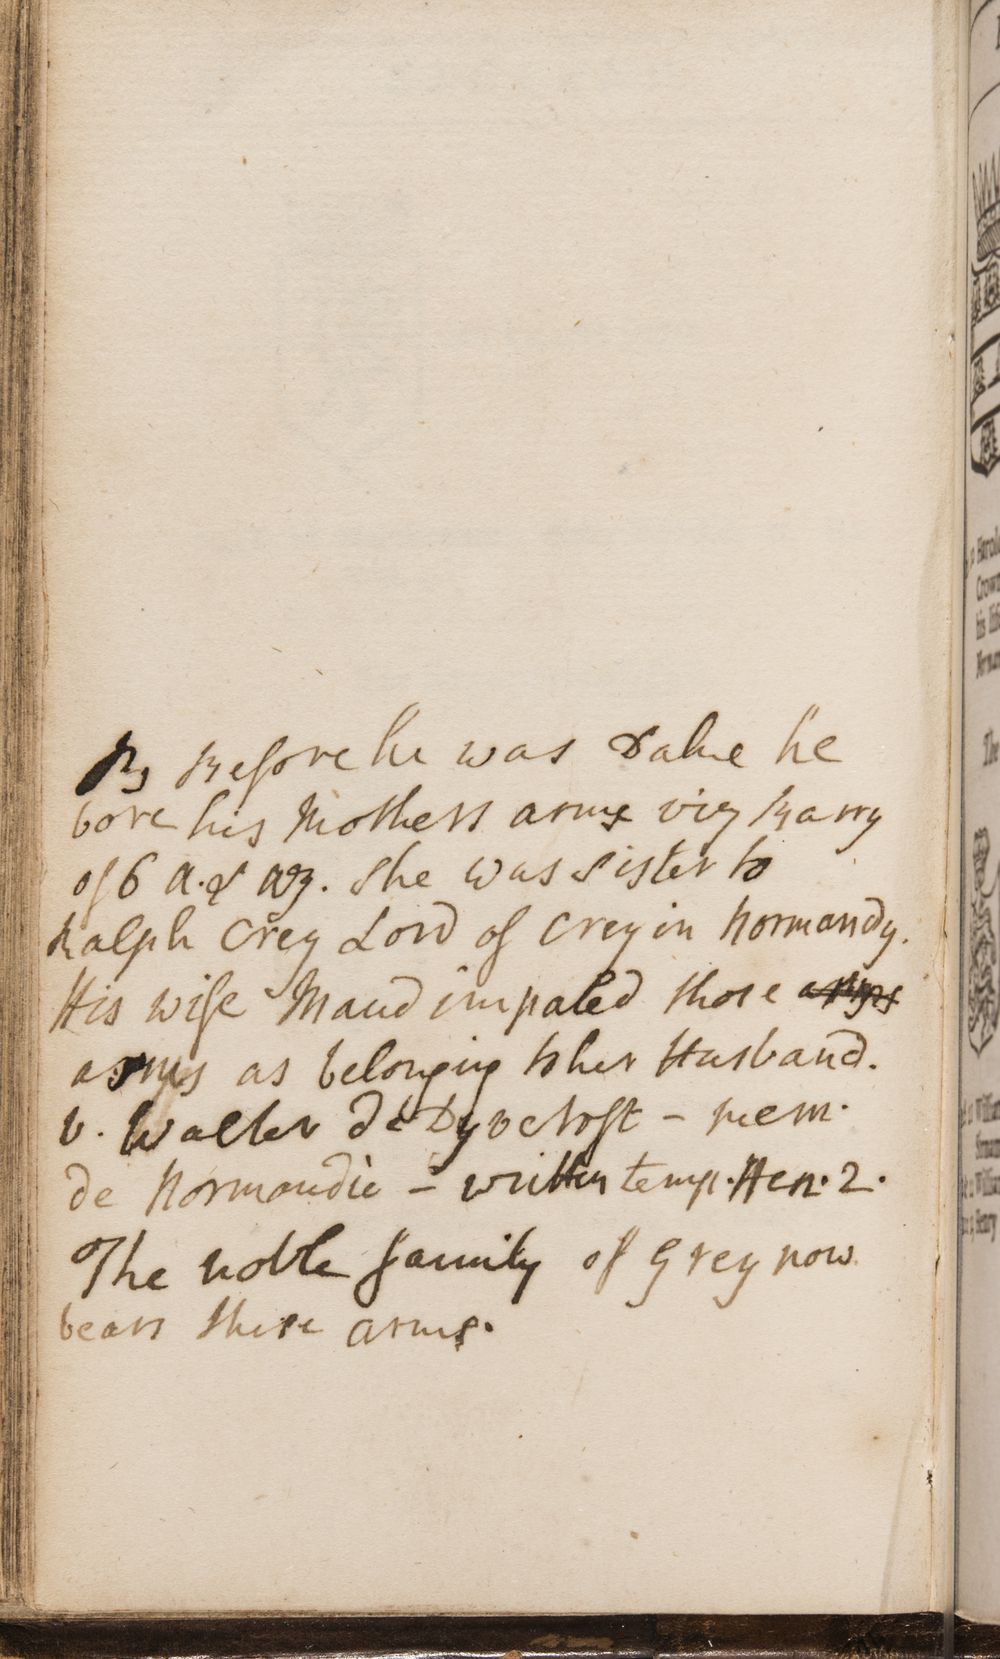 Before he was Duke he
bore his Mothers arms viz Barry
of 6 A. & az. She was sister to
Ralph Crey Lord of Crey in Normandy.
His wife Maud impaled those arms
arms as belonging to her Husband.
v. Walter de Dyvcroft - mem.
de Normandie - written temp. Hen. 2.
The noble family of Grey now
bears these arms.
Harol
Crown
his life
The
Willia
Willia
Henry